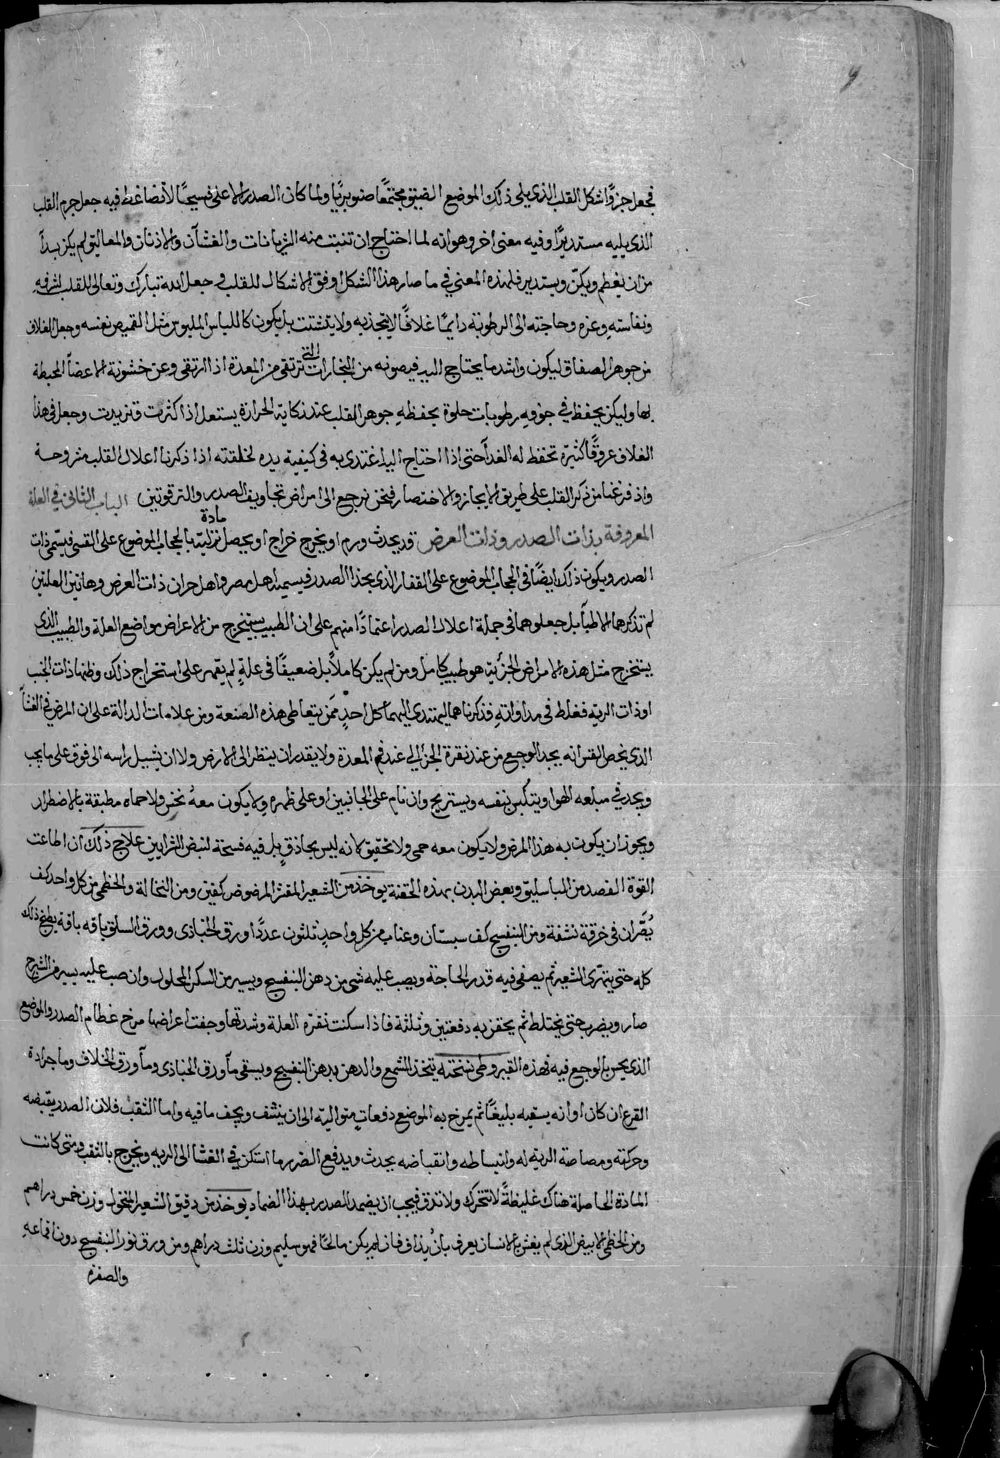 فجعل جزؤا شكل القلب الذي يلي ذلك الموضع الضيق مجتمعا صنوبريا ولما كان الصدر الاعلى فسيحا لا تضاغط فيه جعل جرم القلب
الذي يليه مستديرا وفيه معنى اخر وهو انه لما احتاج ان تنبت منه الشريانات والغشآن والاذنان والمعاليق لم يكن بدا
من ان يعظم ويكبر ويستدير فلهذه المعنى في ما صار هذا الشكل اوفق الاشكال للقلب وجعل الله تبارك وتعالى للقلب لشرفه
ونفاسته وعزه وحاجته الى الرطوبة دايما غلافا لا يجذبه ولا يتشتت بل يكون كاللباس الملبوس مثل القميص نفسه وجعل الغلاف
من جوهر الصفاق ليكون واشد ما يحتاج اليه فيصونه من البخارات التي ترتقي من المعدة اذا ارتقى وعن خشونة الاعضآ المحيطة
بها وليكن يحفظ في جوفه رطوبات حلوة يحفظه جوهر القلب عند نكاية الحرارة يستعمل اذا كثرت وتزيدت وجعل في هذا
الغلاف عروقا كثيرة تحفظ له الغدآ حتى اذا احتاج اليه اغتدى به في كيفية بدء لخلقته اذا ذكرنا اعلال القلب مشروحة
واذ فرغنا من ذكر القلب على طريق الايجاز والاختصار فنحن نرجع الى امراض تجاويف الصدر والترقوتين الباب الثاني في العلة
المعروفة بذات الصدر وذات العرض قد يحدث ورم او يخرج خراج او يحصل مادة نزلية بالحجاب الموضوع على القس فيسمى ذات
الصدر ويكون ذلك ايضا في الحجاب الموضوع على القفار الذي بحذا الصدر فيسميه اهل مصر واهل حران ذات العرض وهاتين العلتين
لم تذكرهما الاطبآ بل جعلوهما في جملة اعلال الصدر اعتمادا منهم على ان الطبيب يستخرج من الاعراض مواضع العلة والطبيب الذي
يستخرج مثل هذه الامراض الجزئية هو طبيب كامل ومن لم يكن كاملا بل ضعيفا في علة لم يقهر على استخراج ذلك وظنها ذات الجنب
او ذات الرية فغلط في مداواته فذكرناهما ليهتدي اليهما كل احد ممن يتعاطى هذه الصنعة ومن علامات الدالة على ان المرض في الغشآ
الذي يخص القس انه يجد الوجع من عند نقرة الحر الى عند فم المعدة ولا يقدر ان ينظر الى الارض ولا ان يشيل راسه الى فوق على ما يجب
ويجد في مبلعه الهوا ويتكبس بنفسه ويستريح وان نام على الجانبين او على ظهره ولا يكون معه نخس ولا حماه مطبقة بالاضطرار
ويجوز ان يكون به هذا المرض ولا يكون معه حمى ولا تحقيق لانه ليس بحاذق بل فيه فسحة لنبض الشرايين علاج ذلك ان اطاعت
القوة الفصد من الباسليق وبعض البدن بهذه الحقنة يوخذ من الشعير المقشر المرضوض كفين ومن النخالة والخطمي من كل واحد كف
يصران في خرقة نشفة ومن البنفسج كف سبستان وعناب من كل واحد ثلثون عددا ورق الخبازى وورق السلق باقة باقة يطبخ ذلك
كله حتى يتهرى الشعير ثم يصفى فيه قدر الحاجة ويصب عليه شي من دهن البنفسج ويسير من السكر المحلول وان صب عليه يسير من الشيرج
صار ويضرب حتى يختلط ثم يحقن به دفعتين وثلثة فاذا سكنت نقرة العلة وشدتها وخفت اعراضها مرخ عظام الصدر والموضع
الذي يحس بالوجع فيه بهذه القيروطي نسخته يتخذ الشمع والدهن بدهن البنفسج ويسقى مآ ورق الخبازى ومآ ورق الخلاف وما جرادة
القرع ان كان اوانه يسقيه بليغا ثم يمرخ به الموضع دفعات متوالية الى ان ينشف ويجف ما فيه واما الثقب فلان الصدر يقبضه
وحركته ومصاصة الرية له وانبساطه وانقباضه يحدث ويدفع الضرر ما استكن في الغشا الى الرية ويخرج بالنفث ومتى كانت
المادة الحاصلة هناك غليظة لا تتحرك ولا تدق فيجب ان يضمد الصدر بهذا الضماد يوخذ من دقيق الشعير المنخول وزن خمس دراهم
ومن الخطمي الابيض الذي لم يغش بالانسان يعرف بان يذاق فان لم يكن مالحا فهو سليم وزن ثلث دراهم ومن ورق نور البنفسج دون اقماعه
والصفره